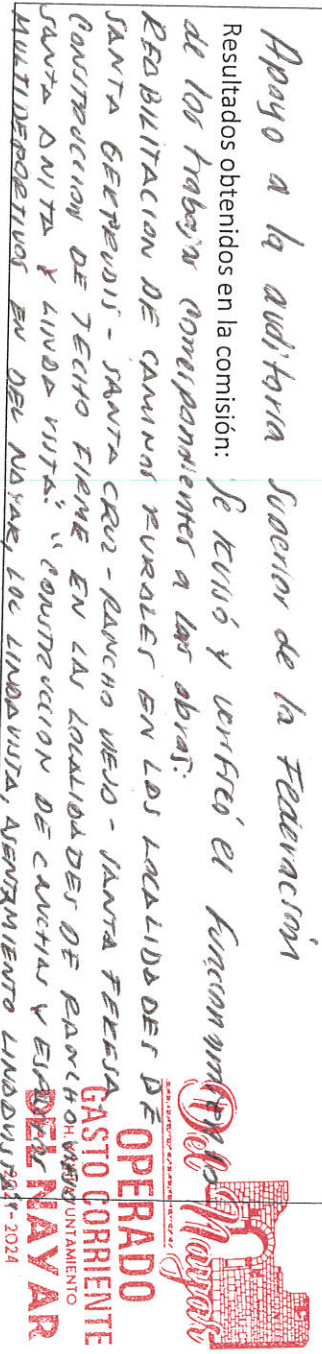 Apoyo a la auditoria Superior de la Federación
Resultados obtenidos en la comisión: Se revisó y verificó el funcionamiento
de los trabajos correspondientes a las obras:
REABILITACION DE CAMINOS RURALES EN LAS LOCALIDADES DE
SANTA GERTRUDIS - SANTA CRUZ - RANCHO VIEJO - SANTA TERESA
CONSTRUCCION DE TECHO FIRME EN LAS LOCALIDADES DE RANCHO
SANTA ANITA Y LINDA VISTA. "CONSTRUCCION DE CANCHAS Y ESPACIOS
MULTIDEPORTIVOS EN DEL NAYAR, LOC LINDAVISTA, ASENTAMIENTO LINDAVISTA
Del Nayar
OPERADO
GASTO CORRIENTE
H. AYUNTAMIENTO
DEL NAYAR
2024